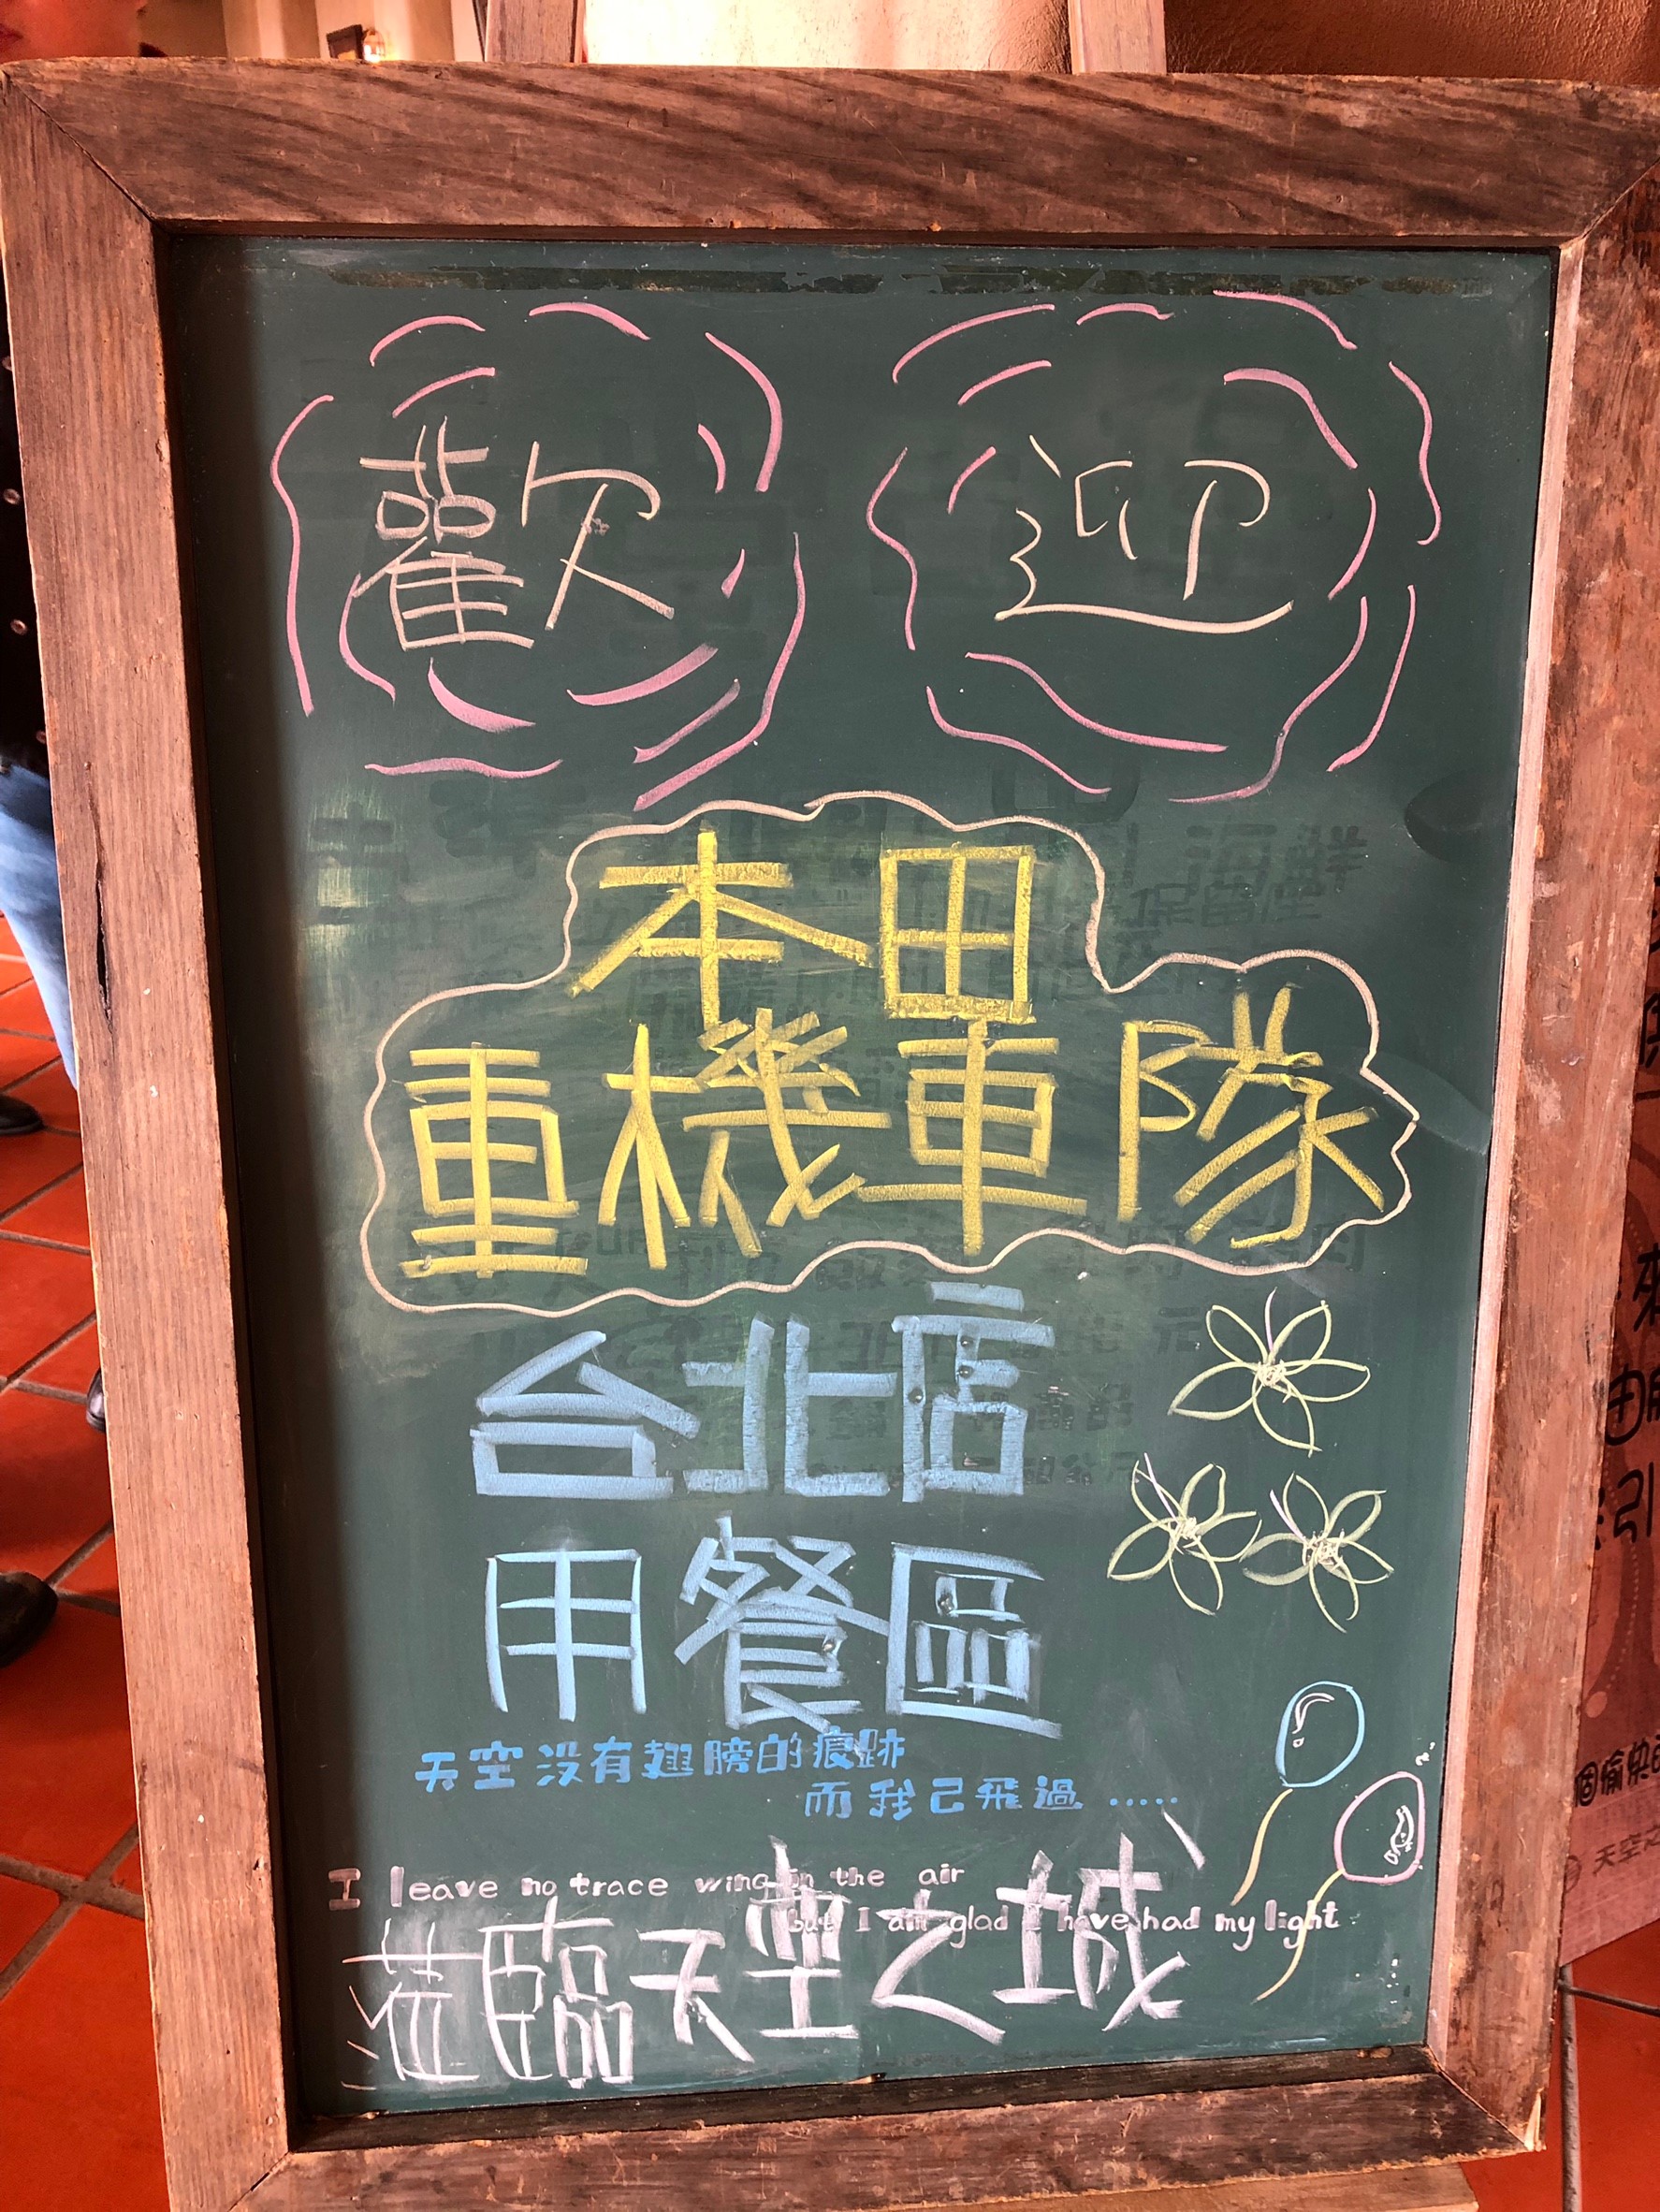 歡迎
本田
重機車隊
台北店
用餐區
天空沒有翅膀的痕跡
而我已飛過.....
I leave no trace wing in the air
but I am glad I have had my light
蒞臨天空之城